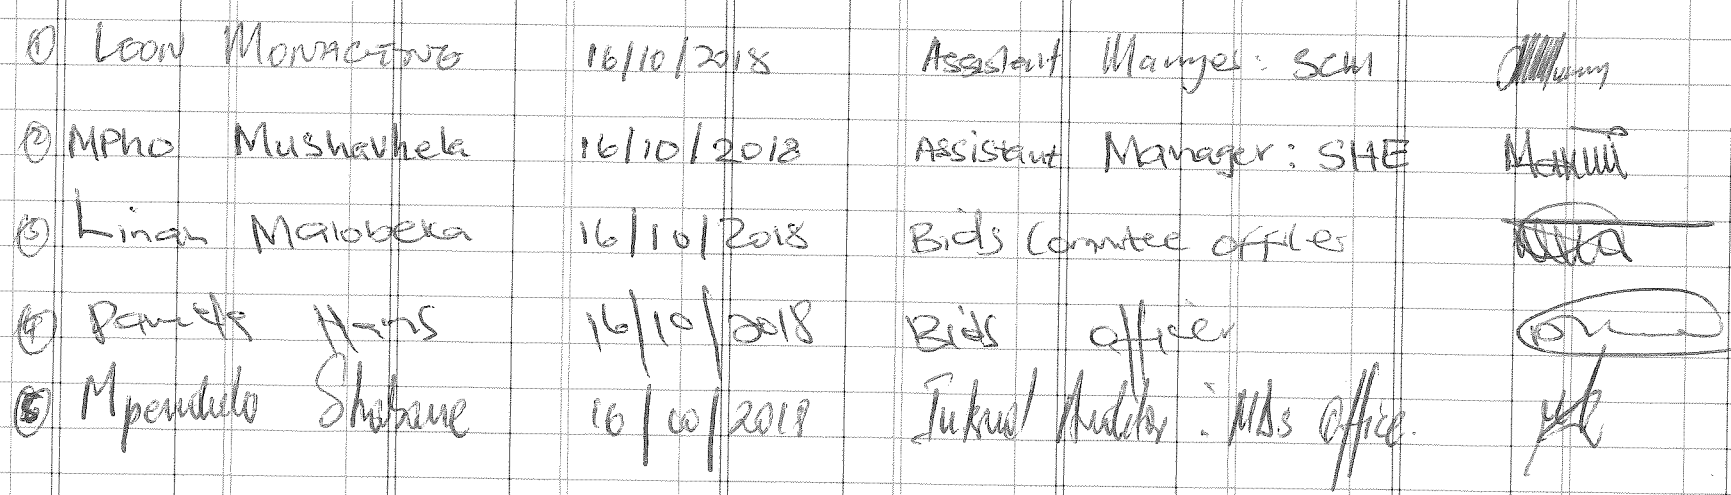 ① LEON MONAGENG 16/10/2018 Assistant Manager: SCM
② MPHO Mushavhela 16/10/2018 Assistant Manager: SHE
③ Linah Malobeka 16/10/2018 Bids Commitee officer
④ Pamela Hans 16/10/2018 Bids officer
⑤ Mpendulo Shabane 16/10/2018 Internal Auditor: MDs office.